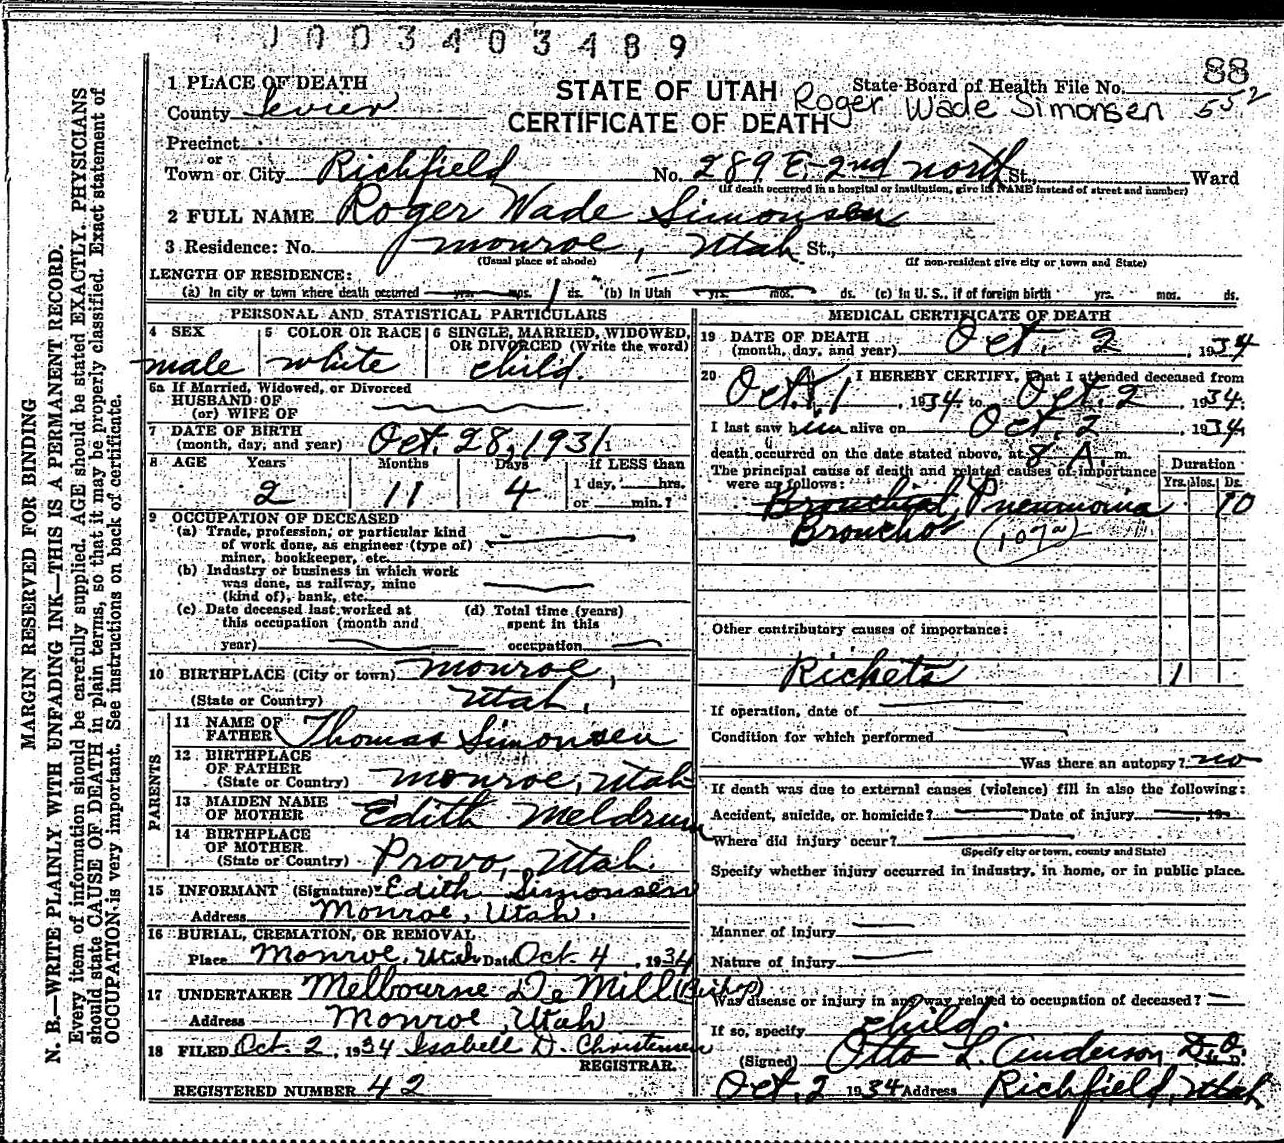 1003403489
88
1 PLACE OF DEATH
STATE OF UTAH
State Board of Health File No.
552
County Sevier
Roger Wade Simonsen
CERTIFICATE OF DEATH
Precinct
or
Town or City Richfield No. 289 E. 2nd north St., Ward
(If death occurred in a hospital or institution, give its NAME instead of street and number)
2 FULL NAME Roger Wade Simonsen
3 Residence: No. monroe, Utah St.,
(Usual place of abode) (If non-resident give city or town and State)
LENGTH OF RESIDENCE:
(a) In city or town where death occurred yrs. mos. 1 ds. (b) In Utah yrs. mos. ds. (c) In U. S., if of foreign birth yrs. mos. ds.
PERSONAL AND STATISTICAL PARTICULARS
4 SEX
male
5 COLOR OR RACE
white
6 SINGLE, MARRIED, WIDOWED,
OR DIVORCED (Write the word)
child.
6a If Married, Widowed, or Divorced
HUSBAND OF
(or) WIFE OF
7 DATE OF BIRTH
(month, day, and year) Oct. 28, 1931
8 AGE Years Months Days If LESS than
2 11 4 1 day, hrs.
or min.?
9 OCCUPATION OF DECEASED
(a) Trade, profession, or particular kind
of work done, as engineer (type of)
miner, bookkeeper, etc.
(b) Industry or business in which work
was done, as railway, mine
(kind of), bank, etc.
(c) Date deceased last worked at
this occupation (month and
year)
(d) Total time (years)
spent in this
occupation
10 BIRTHPLACE (City or town) monroe,
(State or Country) Utah.
PARENTS
11 NAME OF
FATHER Thomas Simonsen
12 BIRTHPLACE
OF FATHER
(State or Country) monroe, Utah
13 MAIDEN NAME
OF MOTHER Edith Meldrum
14 BIRTHPLACE
OF MOTHER
(State or Country) Provo, Utah.
15 INFORMANT (Signature) Edith Simonsen
Address Monroe, Utah.
16 BURIAL, CREMATION, OR REMOVAL
Place Monroe, Utah Date Oct. 4, 1934
17 UNDERTAKER Melbourne De Mill (Bishop)
Address Monroe, Utah
18 FILED Oct. 2, 1934 Isabell D. Christensen
REGISTRAR.
REGISTERED NUMBER 42
MEDICAL CERTIFICATE OF DEATH
19 DATE OF DEATH
(month, day, and year) Oct. 2, 1934
20 I HEREBY CERTIFY, That I attended deceased from
Oct. 1, 1934 to Oct. 2, 1934.
I last saw him alive on Oct. 2, 1934.
death occurred on the date stated above, at 8 A. m.
The principal cause of death and related causes of importance
were as follows:
Duration
Yrs. Mos. Ds.
Bronchial Pneumonia 10
Broncho (107a)
Other contributory causes of importance:
Rickets 1
If operation, date of
Condition for which performed
Was there an autopsy? no
If death was due to external causes (violence) fill in also the following:
Accident, suicide, or homicide? Date of injury , 19
Where did injury occur?
(Specify city or town, county and State)
Specify whether injury occurred in industry, in home, or in public place.
Manner of injury
Nature of injury
Was disease or injury in any way related to occupation of deceased?
If so, specify child.
(Signed) Otto L. Anderson D.O.
Oct. 2 1934 Address Richfield, Utah
MARGIN RESERVED FOR BINDING
N. B.—WRITE PLAINLY WITH UNFADING INK—THIS IS A PERMANENT RECORD.
Every item of information should be carefully supplied. AGE should be stated EXACTLY. PHYSICIANS
should state CAUSE OF DEATH in plain terms, so that it may be properly classified. Exact statement of
OCCUPATION is very important. See instructions on back of certificate.